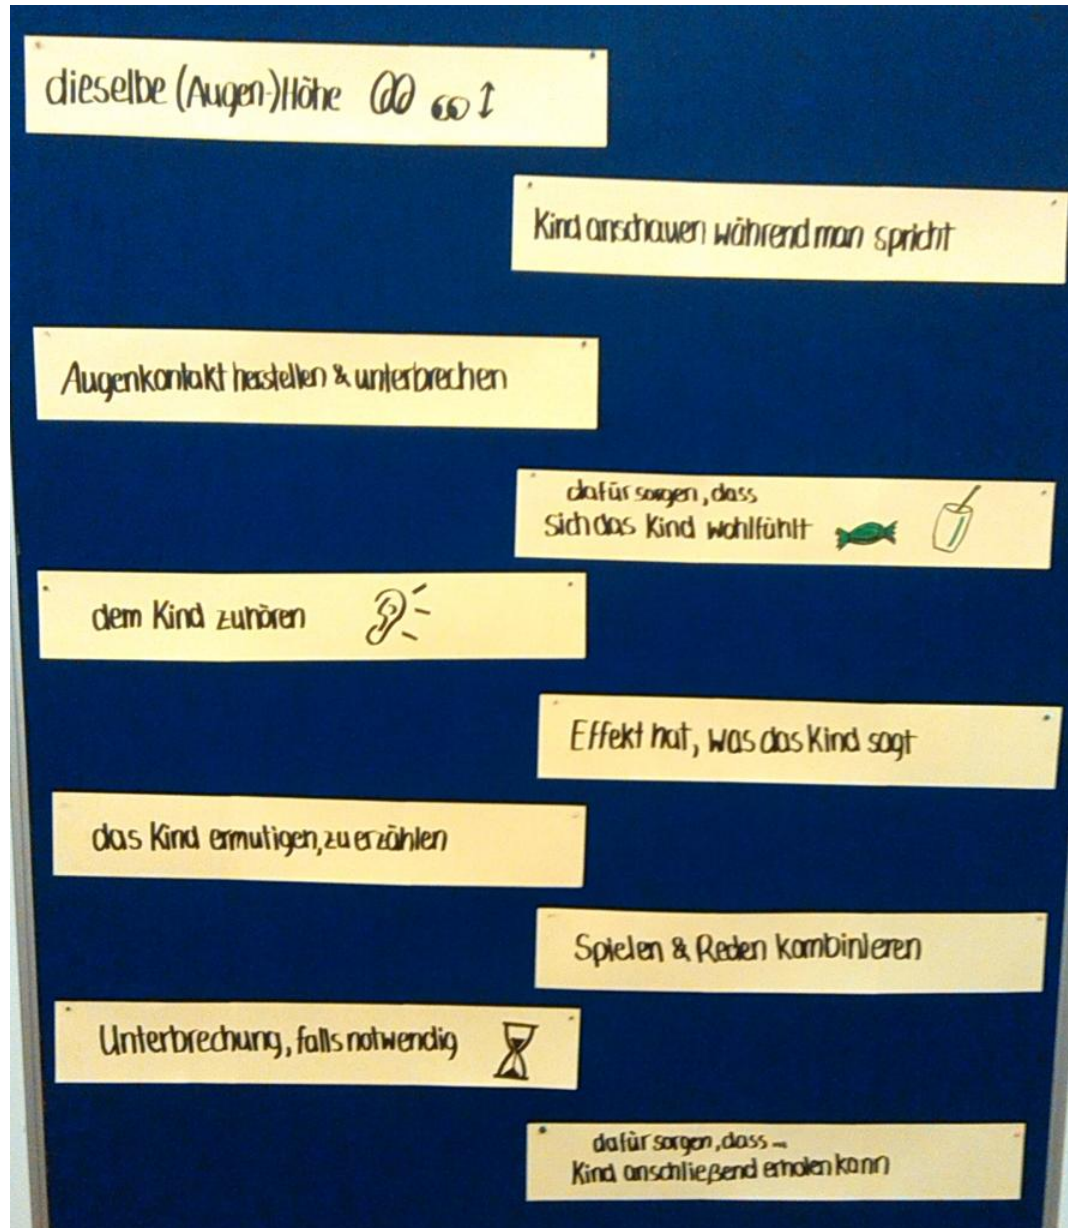 dieselbe (Augen-)Höhe
Kind anschauen während man spricht
Augenkontakt herstellen & unterbrechen
dafür sorgen, dass
sich das Kind wohlfühlt
dem Kind zuhören
Effekt hat, was das Kind sagt
das Kind ermutigen, zu erzählen
Spielen & Reden kombinieren
Unterbrechung, falls notwendig
dafür sorgen, dass
Kind anschließend erholen kann